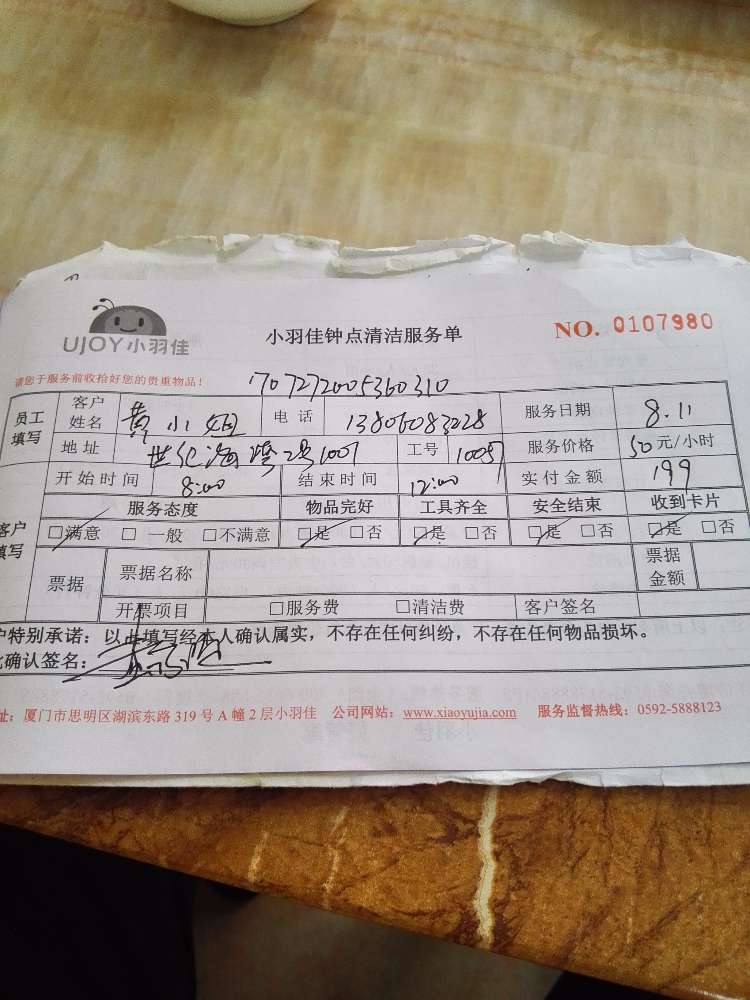 UJOY小羽佳
小羽佳钟点清洁服务单
NO. 0107980
请您于服务前收拾好您的贵重物品！
1707272005360310
员工填写 客户姓名 黄小姐 电话 13806083228 服务日期 8.11
地址 世纪海湾 1001 工号 10057 服务价格 50元/小时
开始时间 8:00 结束时间 12:00 实付金额 199
客户填写 服务态度 物品完好 工具齐全 安全结束 收到卡片
□满意 □一般 □不满意 □是 □否 □是 □否 □是 □否 □是 □否
票据 票据名称 票据金额
开票项目 □服务费 □清洁费 客户签名
户特别承诺：以上填写经本人确认属实，不存在任何纠纷，不存在任何物品损坏。
确认签名：
址：厦门市思明区湖滨东路 319 号 A 幢 2 层小羽佳 公司网站：www.xiaoyujia.com 服务监督热线：0592-5888123